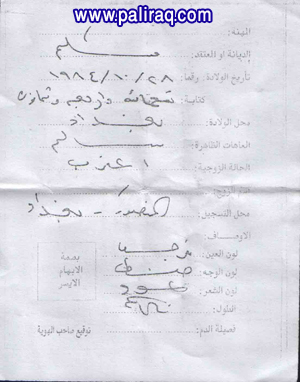 www.paliraq.com
المهنة:
الديانة او المعتقد: مسلم
تاريخ الولادة رقما: ١٩٨٤/١٠/٢٨
كتابة: تسعمائة واربعة وثمانون
محل الولادة: بغداد
العاهات الظاهرة: سالم
الحالة الزوجية: اعزب
محل التسجيل: المنصور - بغداد
الاوصاف:
لون العين:
لون الوجه: حنطي
لون الشعر: اسود
الطول:
فصيلة الدم:
بصمة
الابهام
الايسر
توقيع صاحب الهوية